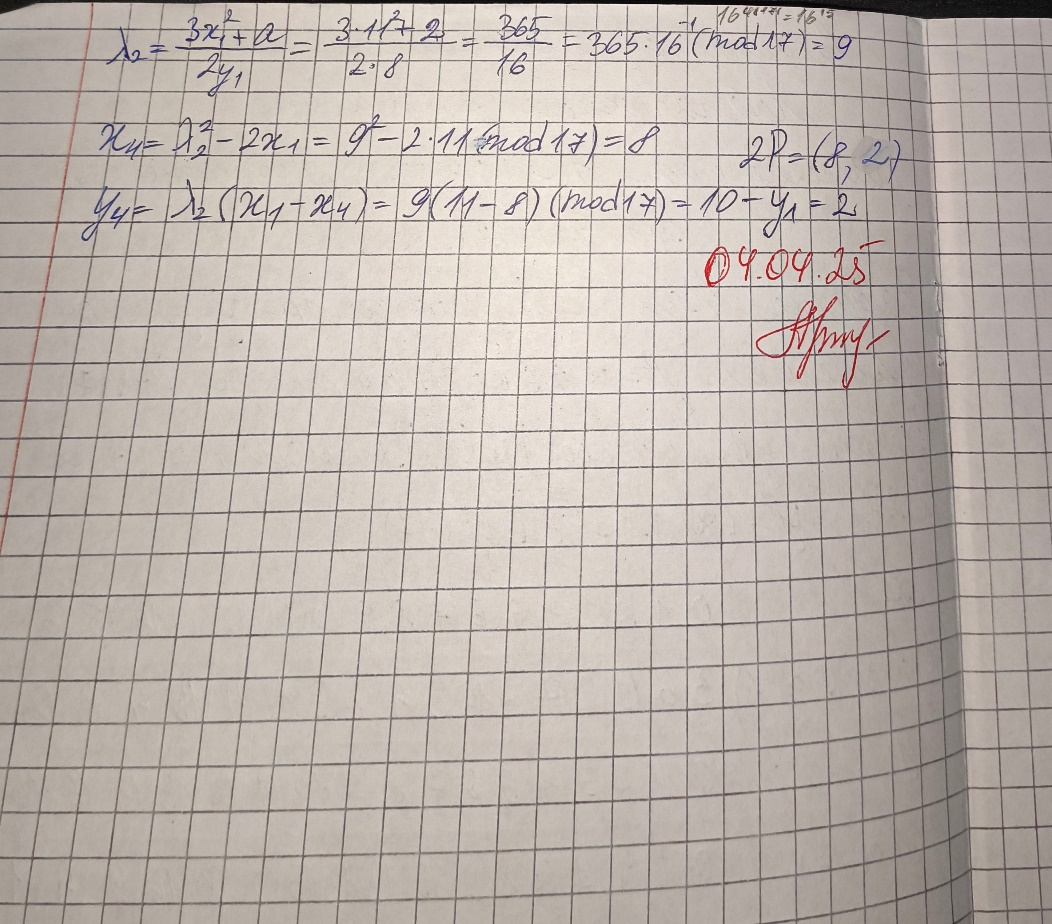 16^φ(17)-1 = 16^15
λ₂ = (3x₁² + a)/(2y₁) = (3·11² + 2)/(2·8) = 365/16 = 365·16⁻¹ (mod 17) = 9
x₄ = λ₂² - 2x₁ = 9² - 2·11 (mod 17) = 8 2P = (8, 2)
y₄ = λ₂ (x₁ - x₄) = 9(11 - 8) (mod 17) = 10 - y₁ = 2
04.04.25